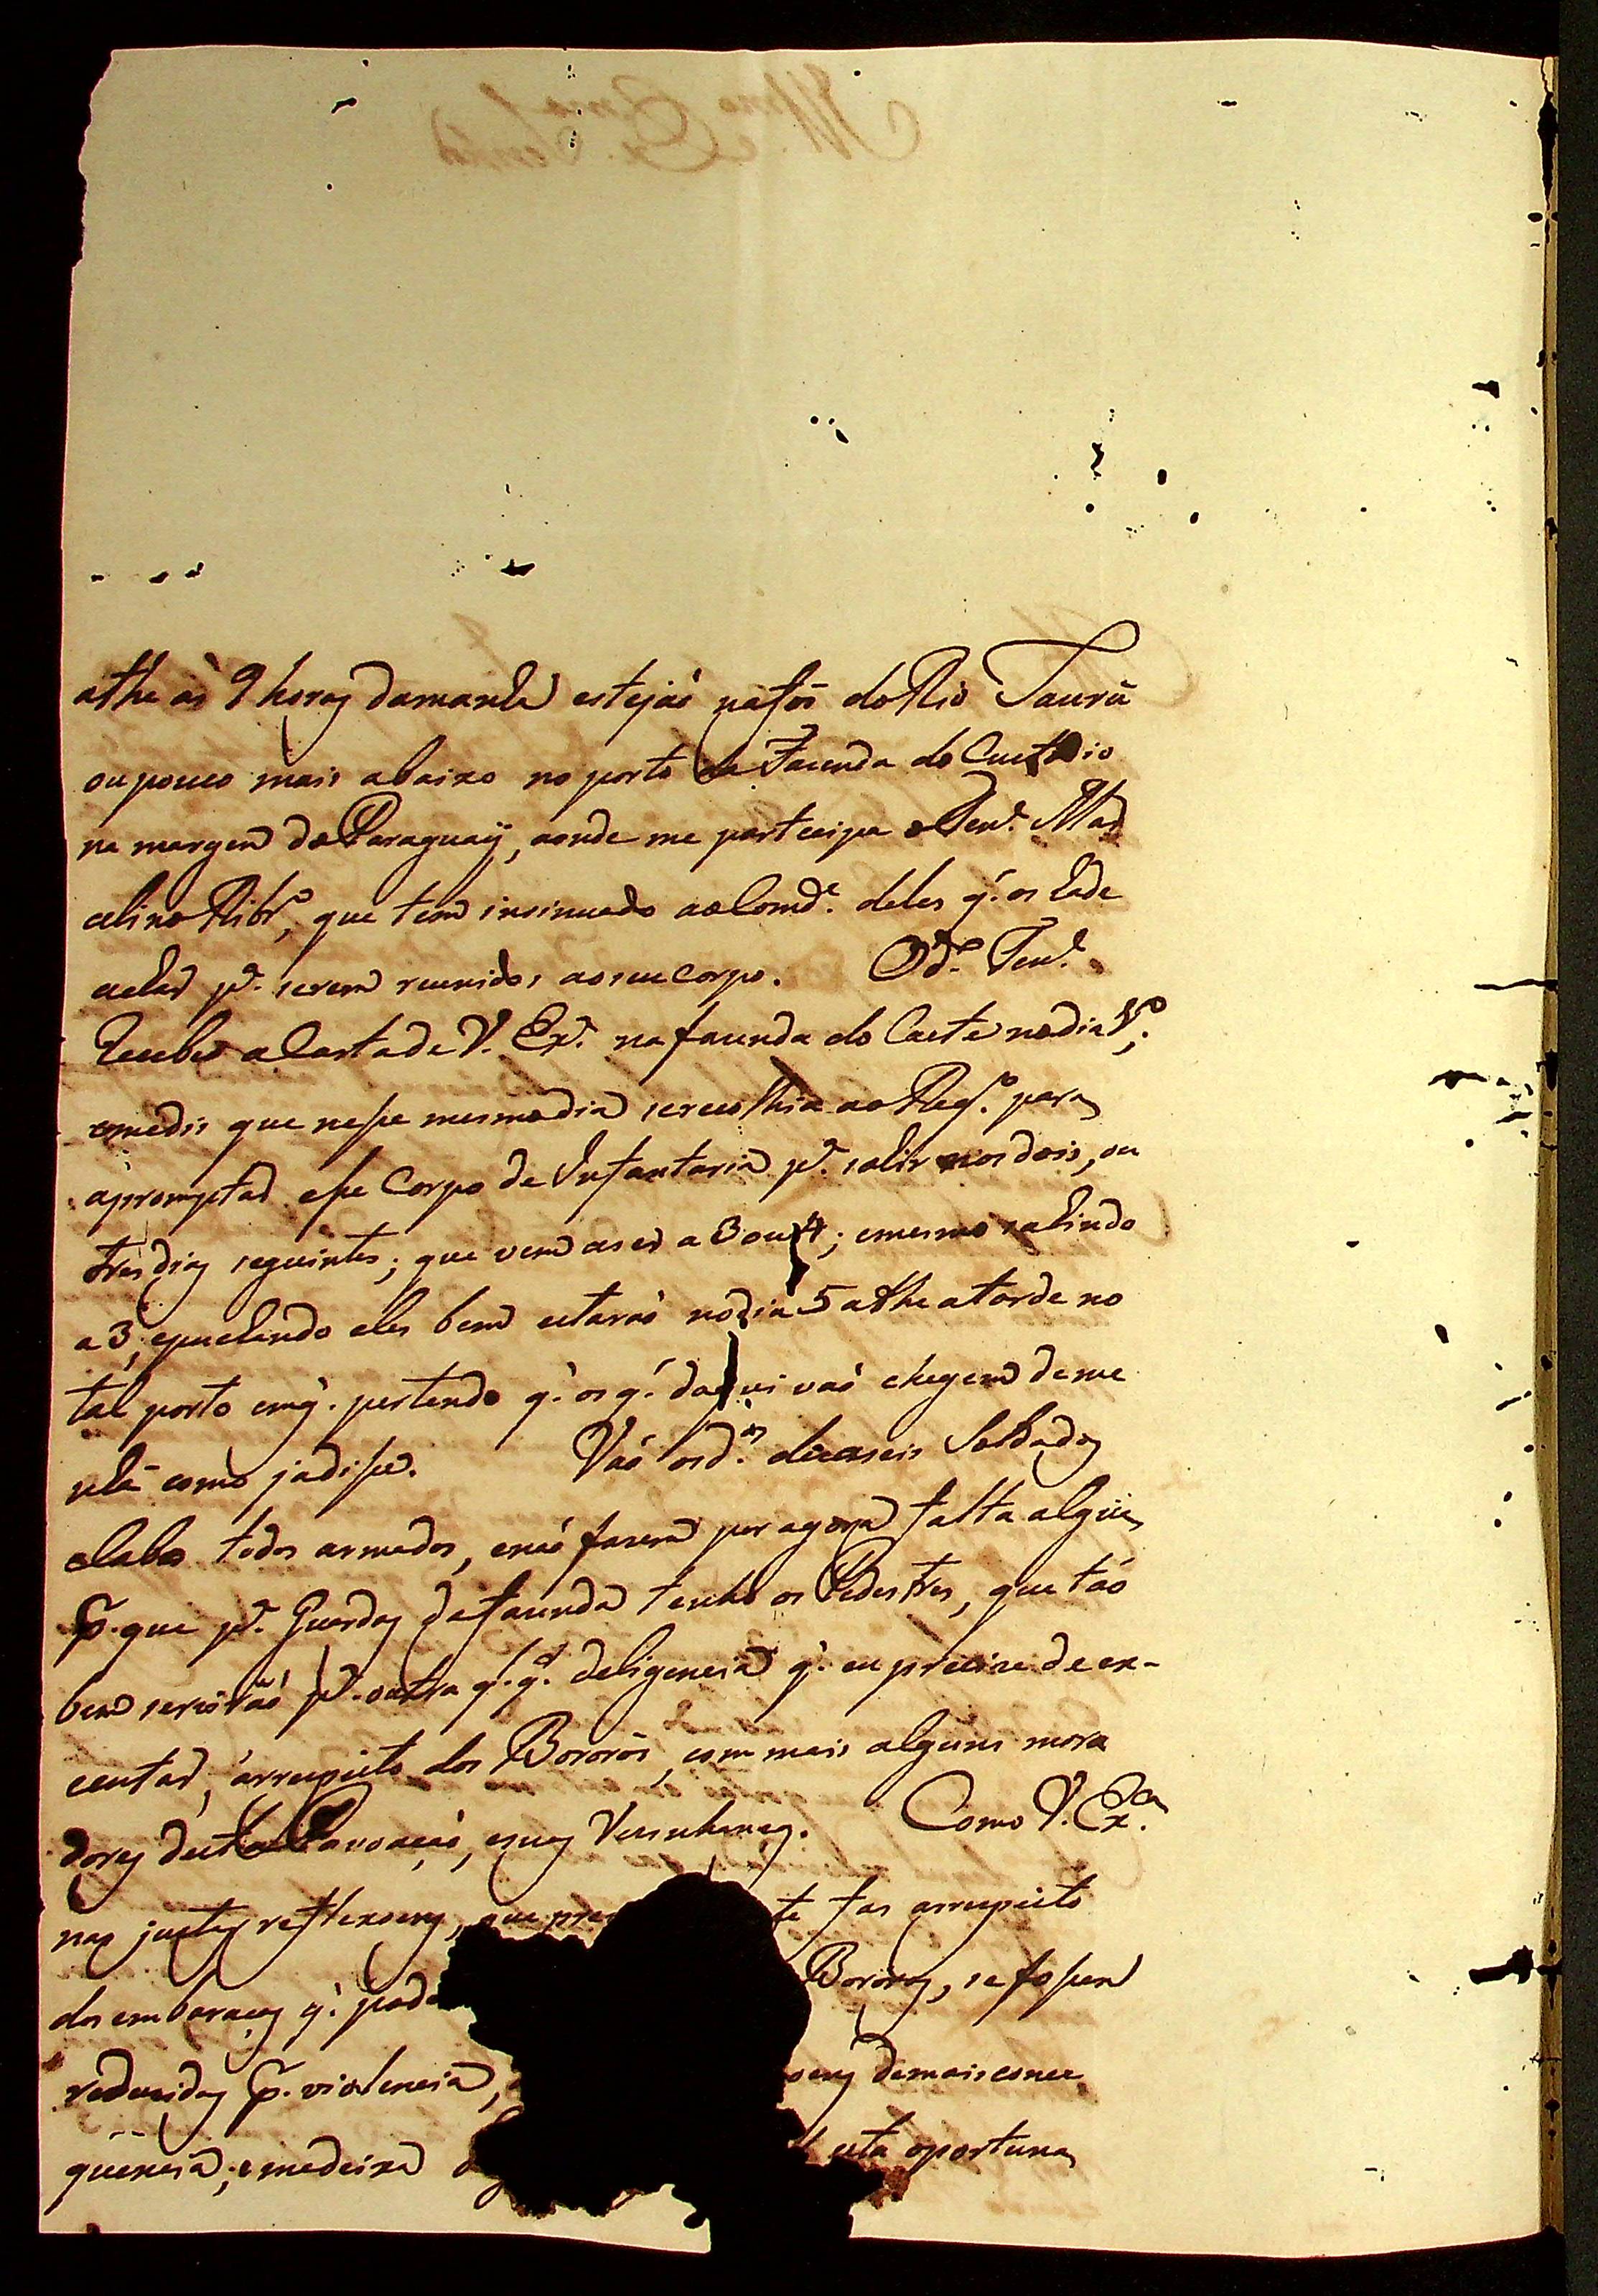 athe ás 9 horas damanhã estejaõ nafós do Rio Jaurú
ou pouco mais abaixo no porto da Fazenda do Custodio
na margem do Paraguaÿ, aonde me partecipa o Ten.e Mar
celino Ribr.o, que tem insinuado ao Com.de deles q. os hade
achar p.a serem reunidos ao seu corpo. O d.o Ten.e
recebeo a Carta de V. Ex.a na fazenda do Caeté no dia 1.o;
emedis que nesse mesmo dia serecolhia ao Reg.o para
apromptar esse Corpo de Infantaria p.a sahir nos dois, ou
tres dias seguintes; que vem aser a 3 ou 4; emesmo sahindo
a 3, epuchando eles bem estaraõ no dia 5 athe atarde no
tal porto emq. pertendo q. os q. daqui vaõ chegem deme
nhã como jadisse. Vaõ os d.os dezaseis Soldados
e Cabo todos armados, enaõ fazem por agora falta algũa,
p. que p.a Guardas dafazenda tenho os Pedestres, que taõ
bem serviráõ p.a outra q.q.r deligencia q. eu precize de ex-
ecutar, árrespeito dos Bororós, com mais alguns mora
dores desta Povoaçaõ, esuas Vezinhanças. Como V. Ex.a
nas justas reflexoens, que pre te fas arrespeito
dos embaraços q. pode Bororos, se fossem
reduzidos p. violencia, oens demais conce
quencia; emedeixa esta oportuna